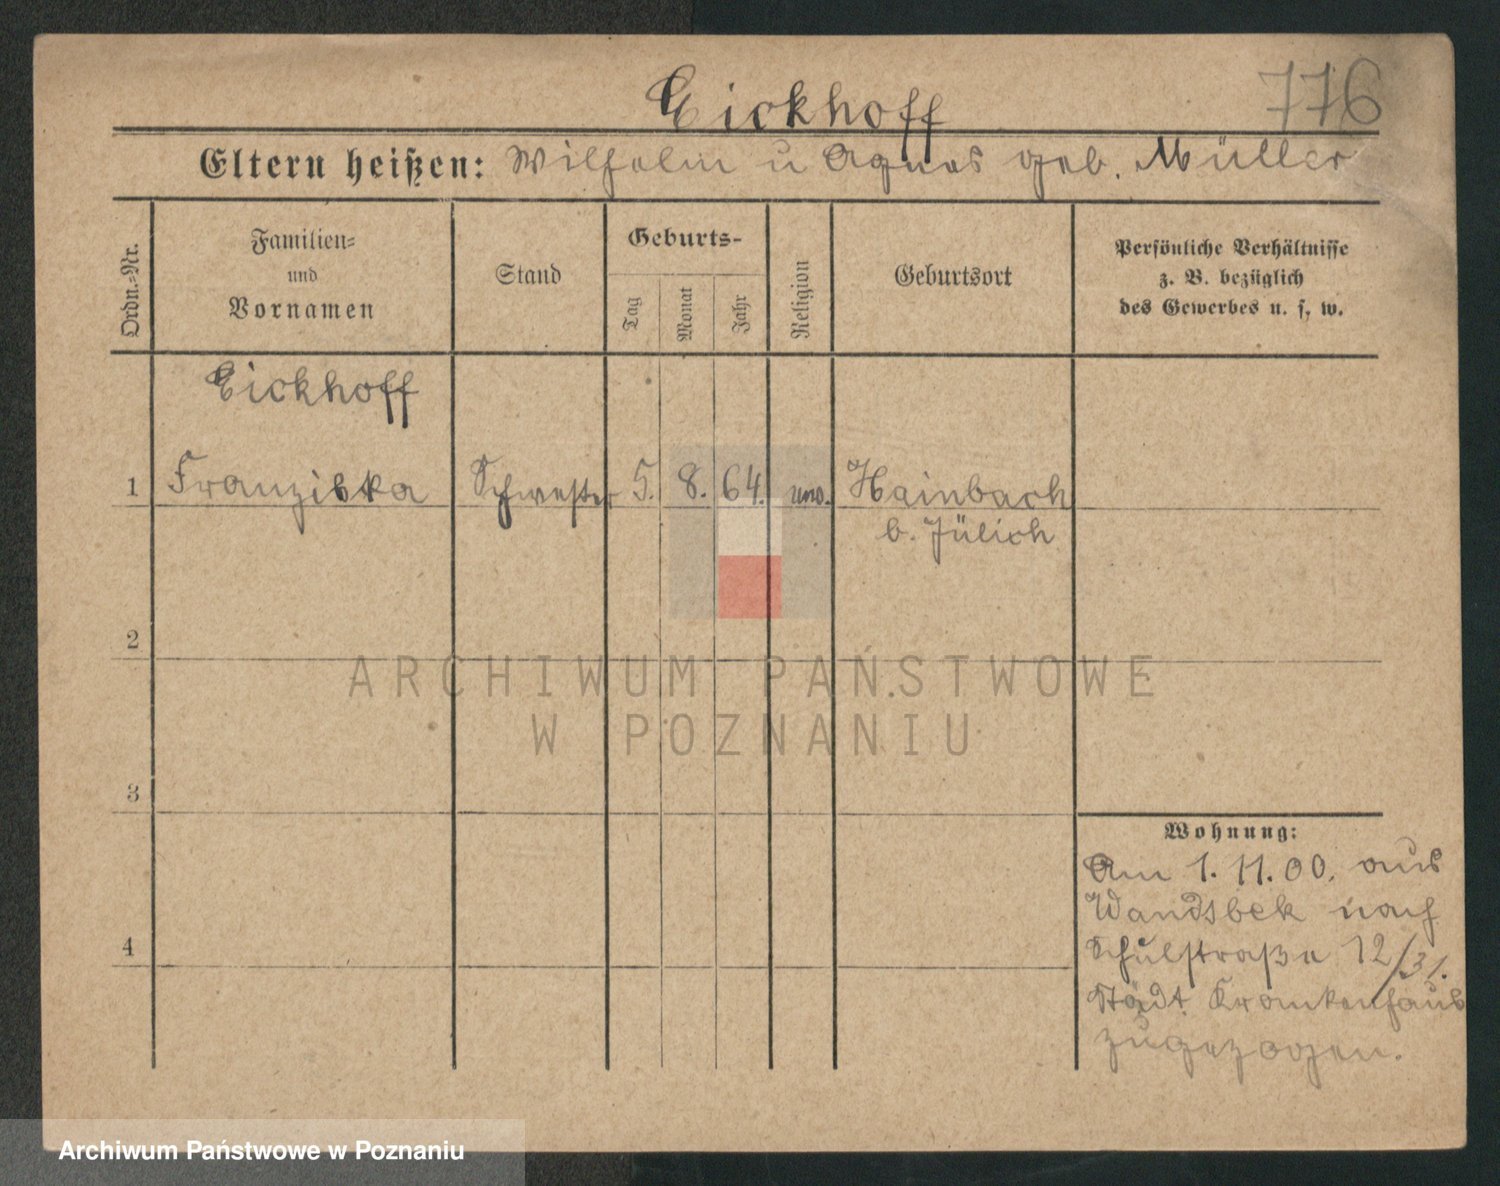 Eickhoff
776
Eltern heißen: Wilhelm u Agnes geb. Müller
Ordn.-Nr.
Familien-
und
Vornamen
Stand
Geburts-
Tag
Monat
Jahr
Religion
Geburtsort
Persönliche Verhältnisse
z. B. bezüglich
des Gewerbes u. s. w.
Eickhoff
1 Franziska Schwester 5. 8. 64. Hainbach
b. Jülich
2
3
4
Wohnung:
Am 1. 11. 00. aus
Wandsbek nach
Schulstraße 12/31.
Städt. Krankenhaus
zugezogen.
ARCHIWUM PAŃSTWOWE
W POZNANIU
Archiwum Państwowe w Poznaniu